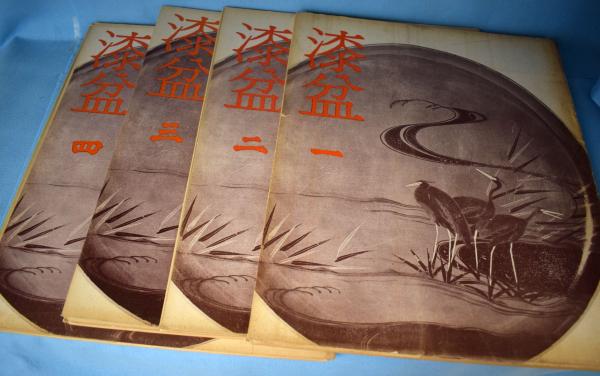 漆盆
四
漆盆
三
漆盆
二
漆盆
一